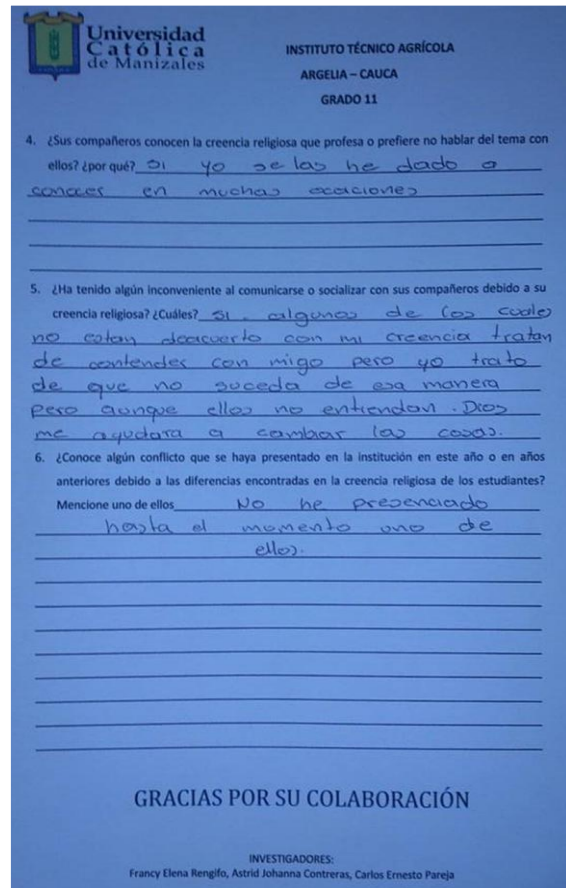 Universidad
Católica
de Manizales
INSTITUTO TÉCNICO AGRÍCOLA
ARGELIA – CAUCA
GRADO 11
4. ¿Sus compañeros conocen la creencia religiosa que profesa o prefiere no hablar del tema con
ellos? ¿por qué? si yo se las he dado a
conocer en muchas ocaciones
5. ¿Ha tenido algún inconveniente al comunicarse o socializar con sus compañeros debido a su
creencia religiosa? ¿Cuáles? si. algunos de los cuales
no estan deacuerto con mi creencia tratan
de contender con migo pero yo trato
de que no suceda de esa manera
pero aunque ellos no entiendan. Dios
me ayudara a cambiar las cosas.
6. ¿Conoce algún conflicto que se haya presentado en la institución en este año o en años
anteriores debido a las diferencias encontradas en la creencia religiosa de los estudiantes?
Mencione uno de ellos No he presenciado
hasta el momento uno de
ellos.
GRACIAS POR SU COLABORACIÓN
INVESTIGADORES:
Francy Elena Rengifo, Astrid Johanna Contreras, Carlos Ernesto Pareja